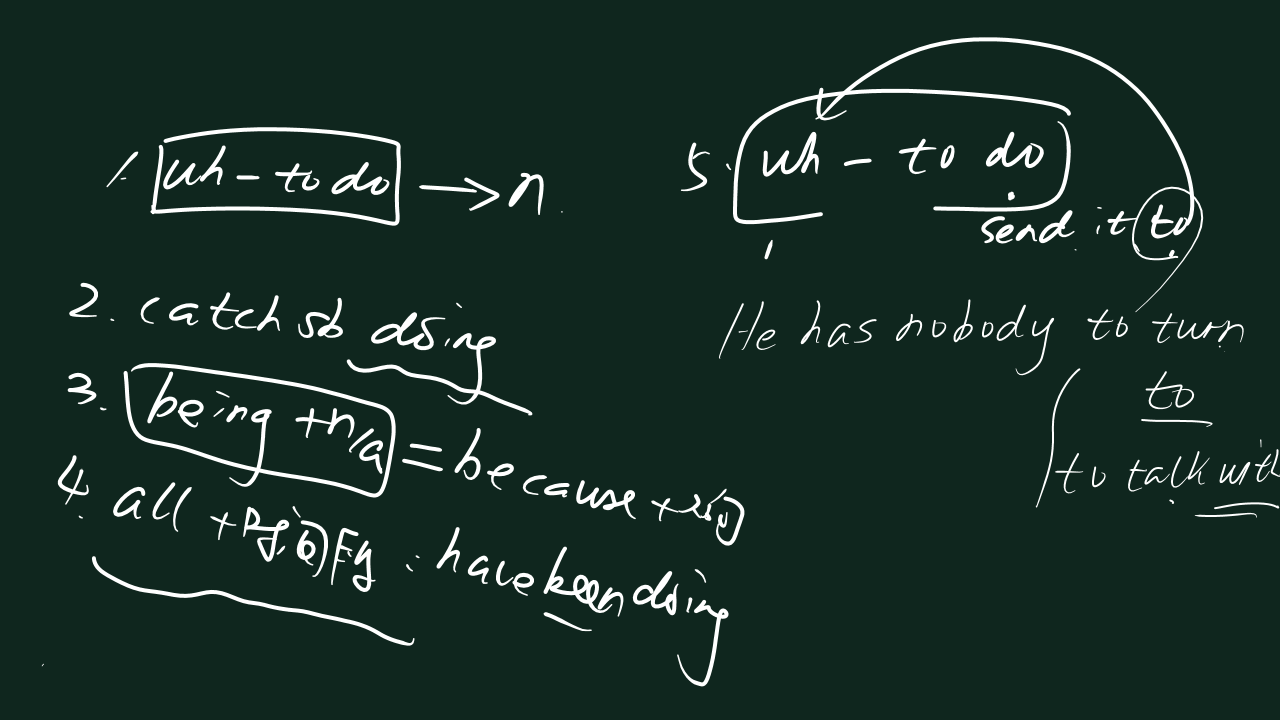 1. wh - to do → n.
2. catch sb doing
3. being + n/a = because + 句子
4. all + 时间 : have been doing
5. wh - to do
send it to
He has nobody to turn
to
to talk with